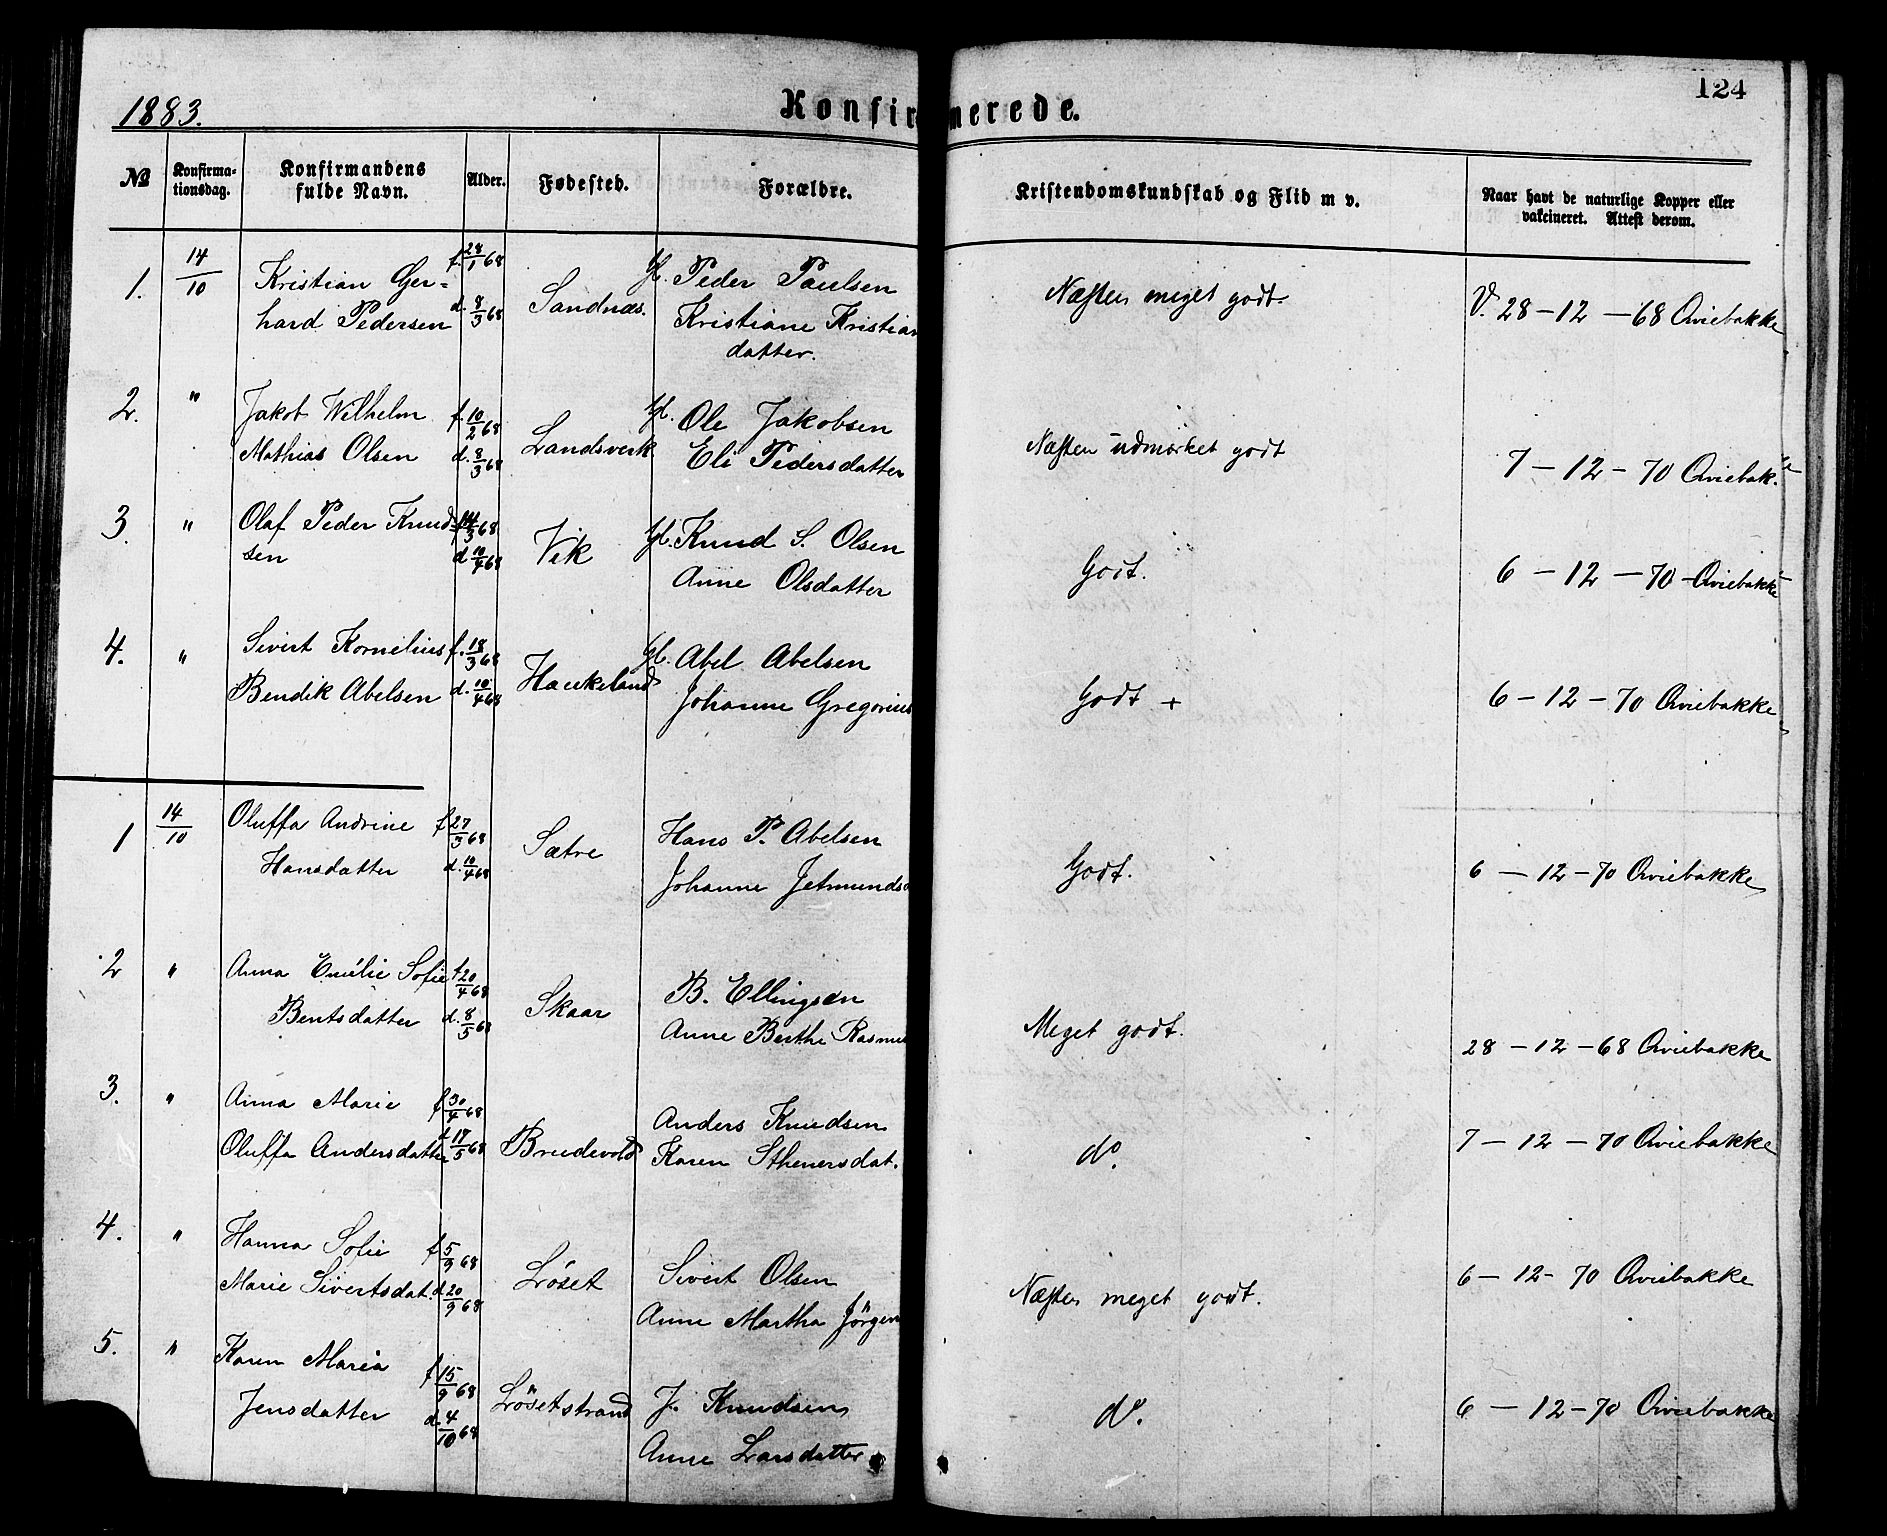 124
1883.
Konfirmerede.
№
Konfirma-
tionsdag.
Konfirmandens
fulde Navn.
Alder.
Fødested.
Forældre.
Kristendomskundskab og Flid m v.
Naar havt de naturlige Kopper eller
vakcineret. Attest derom.
1. 14/10 Kristian Ger= f. 28/1 68 Sandnæs. Peder Paulsen Næsten meget godt. V. 28 - 12 - 68 Qviebakke
hard Pedersen d. 8/3 68 Kristiane Kristian
datter.
2. " Jakob Wilhelm f. 10/2 68 Landsverk Ole Jakobsen Næsten udmærket godt 7 - 12 - 70 Qviebak.
Mathias Olsen d. 8/3 68 Eli Pedersdatter
3. " Olaf Peder Knud- 3 68 Vik Knud S. Olsen Godt. 6 - 12 - 70 Qviebakke
sen d 10/4 68 Anne Olsdatter
4. " Sivert Kornelius f. 18/3 68 Haukeland Abel Abelsen Godt + 6 - 12 - 70 Qviebakke
Bendik Abelsen d. 10/4 68 Johanne Gregorius
1 14/10 Oluffa Andrine f 27/3 68 Sætre Hans P. Abelsen Godt. 6 - 12 - 70 Qviebakke
Hansdatter d. 10/4 68 Johanne Jetmundsd
2 " Anna Emilie Sofie f 20/4 68 Skaar B. Ellingsen Meget godt. 28 - 12 - 68 Qviebakke
Bentsdatter d. 8/5 68 Anne Berthe Rasmus
3. " Anna Marie f 30/4 68 Brudevold Anders Knudsen do. 7 - 12 - 70 Qviebakke
Oluffa Andersdatter d 17/5 68 Karen Sthenersdat.
4. " Hanna Sofie f 5/9 68 Löset Sivert Olsen Næsten meget godt. 6 - 12 - 70 Qviebakke
Marie Sivertsdat. d 20/9 68 Anne Martha Jörgen
5. " Karen Maria f 15/9 68 Lösetstrand J. Knudsen do. 6 - 12 - 70 Qviebakke
Jensdatter d. 4/10 68 Anne Larsdatter